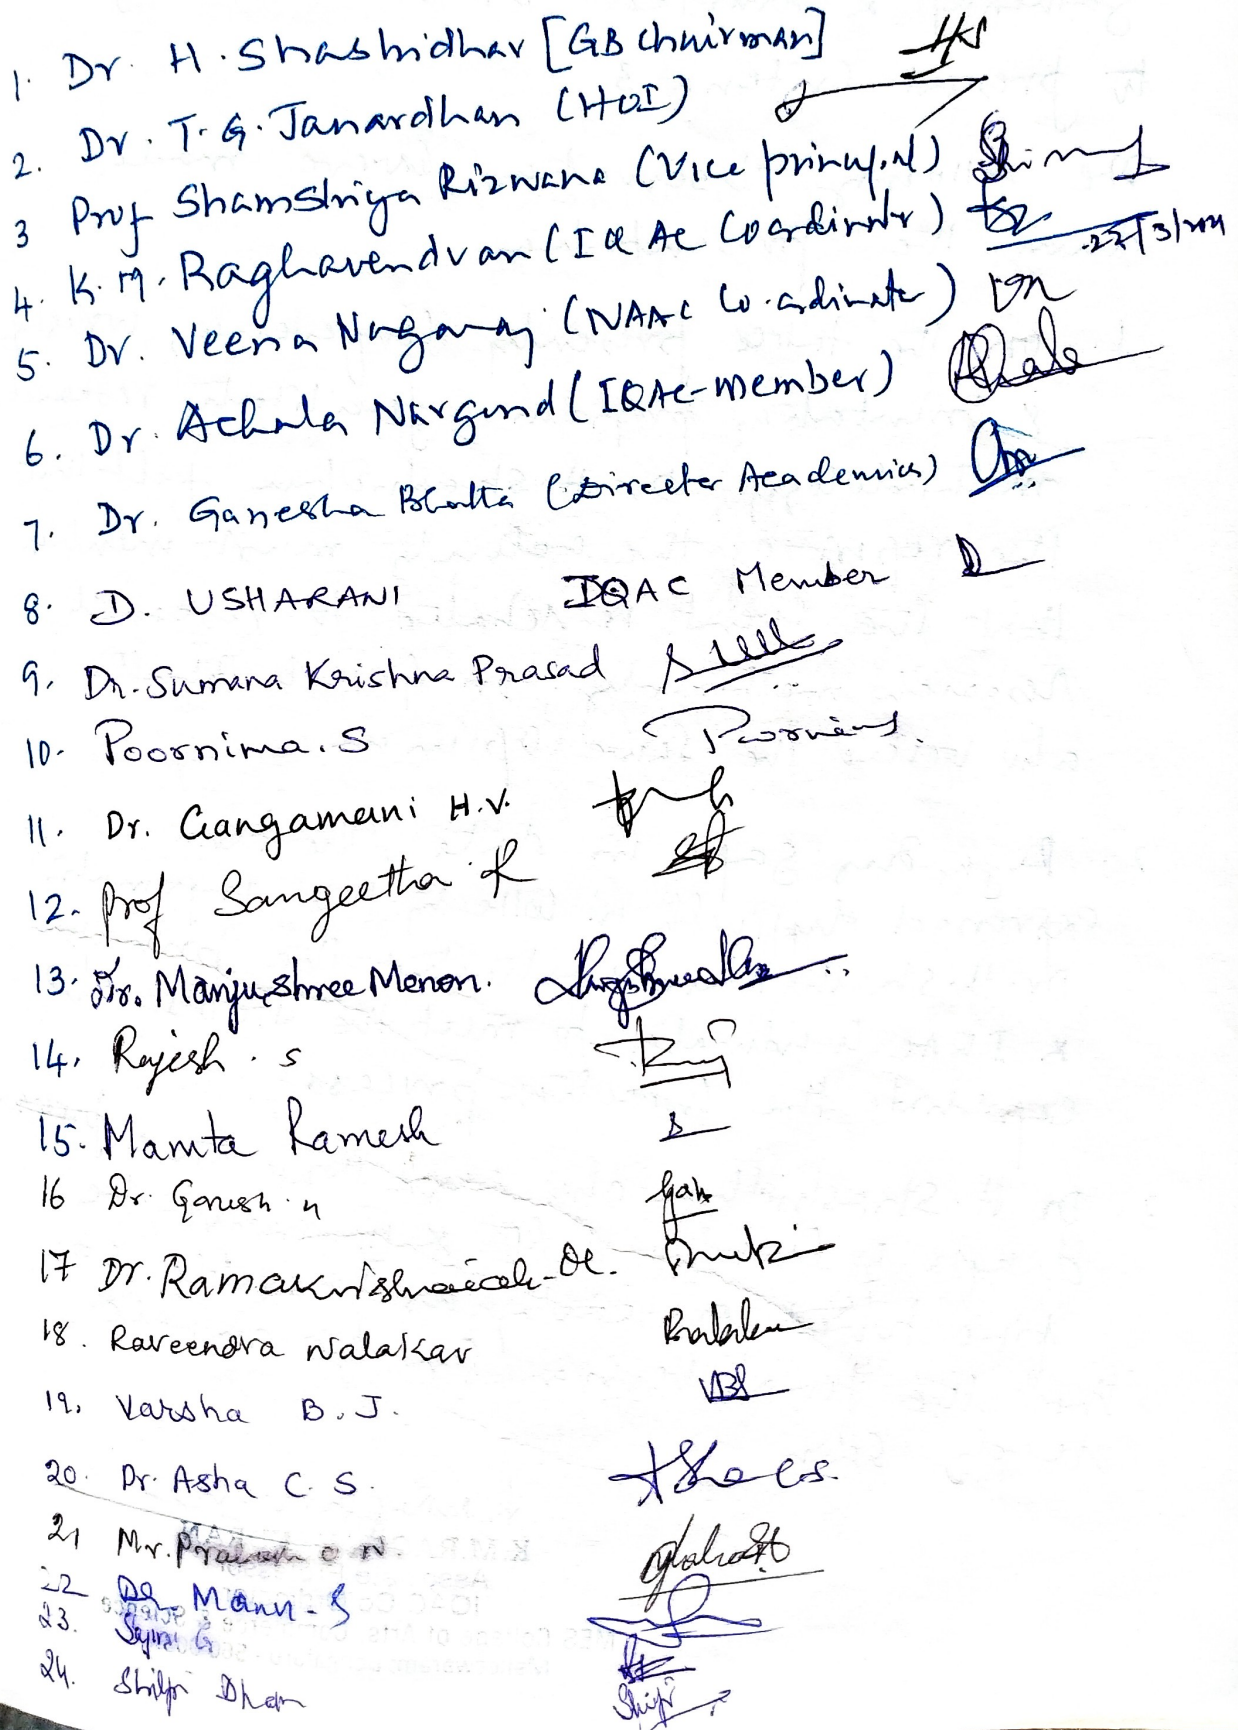 1. Dr. H. Shashidhar [GB Chairman] HS
2. Dr. T. G. Janardhan (HOI)
3 Prof Shamshriya Rizwana (Vice principal)
4. K. M. Raghavendran (IQAC Coordinator)
5. Dr. Veena Nagaraj (NAAC Co-ordinator)
6. Dr. Achala Nargund (IQAC-member)
7. Dr. Ganesha Bhatta (Director Academics)
8. D. USHARANI IQAC Member
9. Dr. Sumana Krishna Prasad
10- Poornima. S
11. Dr. Gangamani H.V.
12. Prof Sangeetha R
13. Dr. Manjushree Menon.
14. Rajesh. S
15. Mamta Ramesh
16 Dr. Ganesh. n
17 Dr. Ramakrishnaiah
18. Raveendra Nalakar
19. Varsha B. J. VBJ
20. Dr. Asha C. S. Asha C.S.
21 Mr.
22 Dr. Manu - S
23.
24. Shilpi